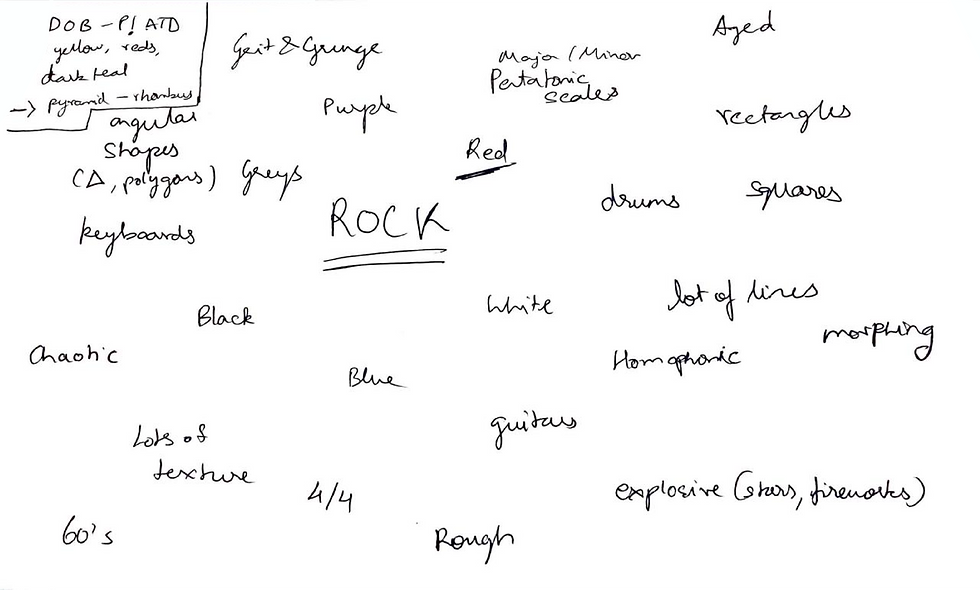 DOB - P! ATD
yellow, reds,
dark teal
→ pyramid - rhombus
Grit & Grunge
Major / Minor
Pentatonic
scales
Aged
Purple
rectangles
angular
Shapes
(△, polygons)
Greys
Red
drums
squares
keyboards
ROCK
Black
White
lot of lines
morphing
Chaotic
Homophonic
Blue
guitars
Lots of
texture
4/4
explosive (stars, fireworks)
60's
Rough